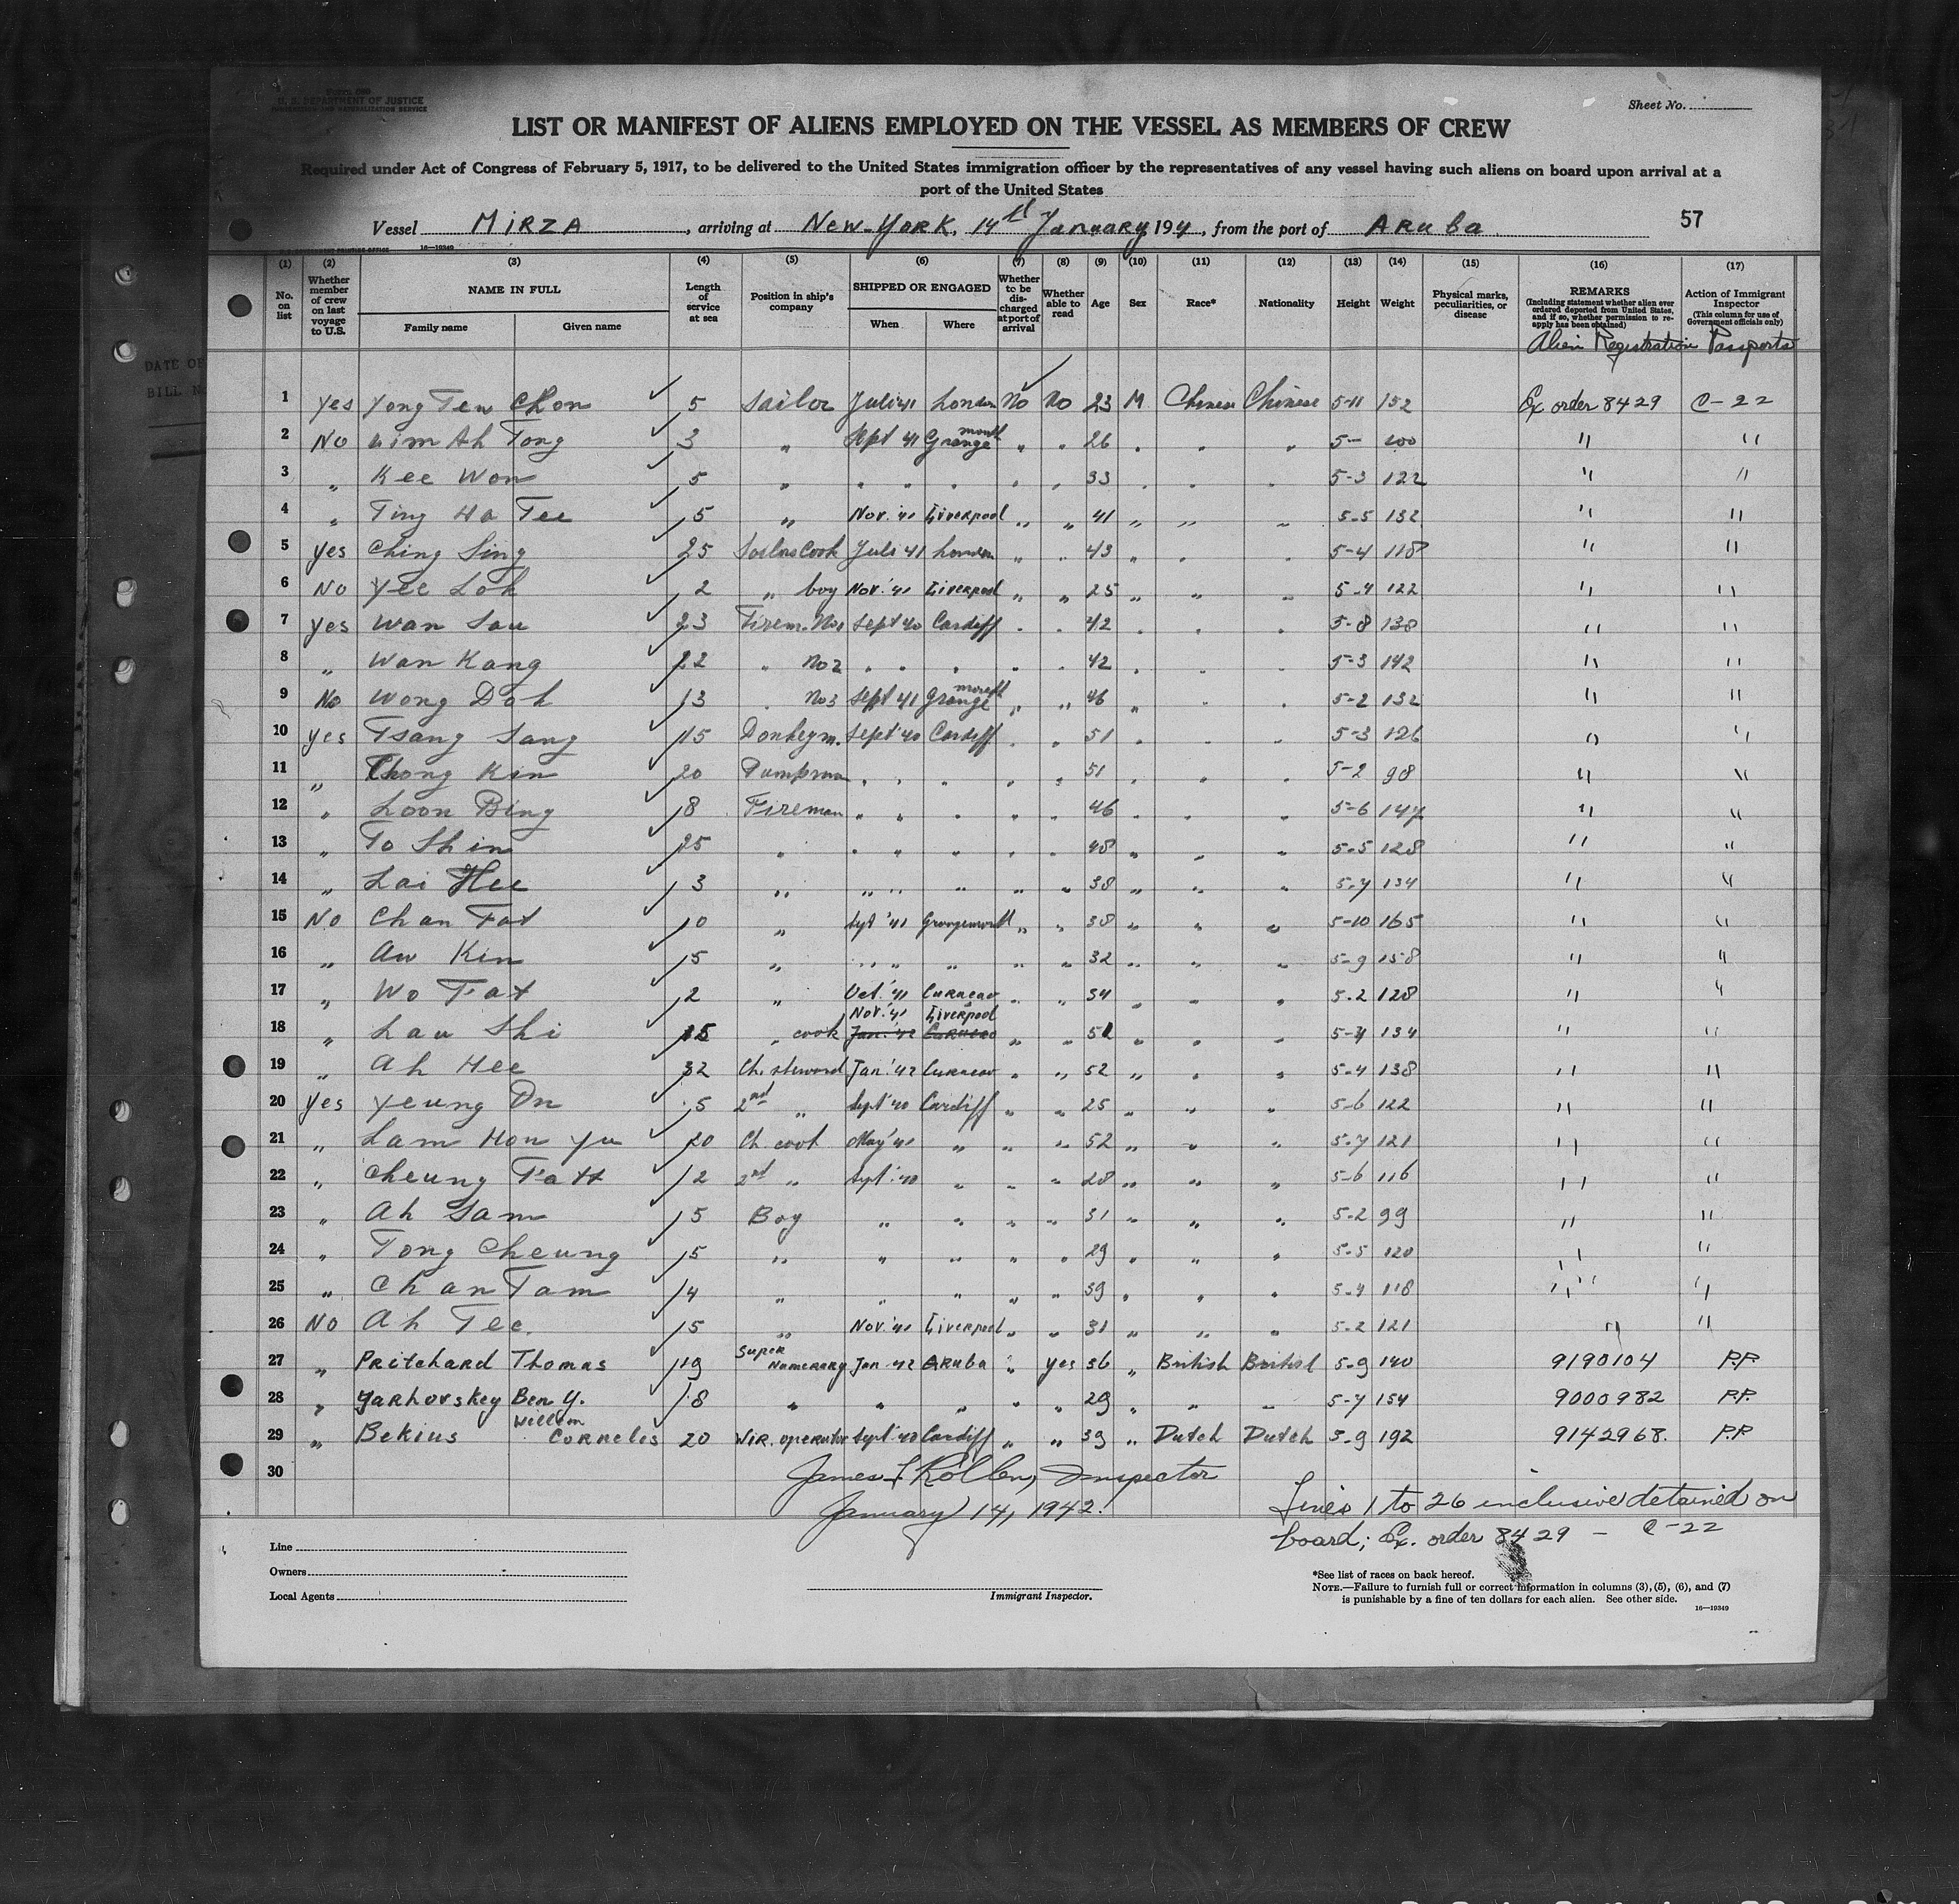 Form 689
U. S. DEPARTMENT OF JUSTICE
IMMIGRATION AND NATURALIZATION SERVICE
Sheet No.
LIST OR MANIFEST OF ALIENS EMPLOYED ON THE VESSEL AS MEMBERS OF CREW
Required under Act of Congress of February 5, 1917, to be delivered to the United States immigration officer by the representatives of any vessel having such aliens on board upon arrival at a
port of the United States
Vessel MIRZA, arriving at New-York, 14th January 194, from the port of ARuba 57
16—19349
(1) (2) (3) (4) (5) (6) (7) (8) (9) (10) (11) (12) (13) (14) (15) (16) (17)
No. on list
Whether member of crew on last voyage to U.S.
NAME IN FULL
Family name Given name
Length of service at sea
Position in ship's company
SHIPPED OR ENGAGED
When Where
Whether to be discharged at port of arrival
Whether able to read
Age
Sex
Race*
Nationality
Height
Weight
Physical marks, peculiarities, or disease
REMARKS
(Including statement whether alien ever ordered deported from United States, and if so, whether permission to reapply has been obtained)
Action of Immigrant Inspector
(This column for use of Government officials only)
Alien Registration Passports
DATE OF
BILL N
1 Yes Yong Ten Chon 5 Sailor Juli 41 London No No 23 M Chinese Chinese 5-11 152 Ex order 8429 C-22
2 No Lim Ah Tong 3 " Sept 41 Grangemouth " " 26 " " " 5- 100 " "
3 " Kee Won 5 " " " " " " 33 " " " 5-3 122 " "
4 " Ting Ha Tee 5 " Nov. '41 Liverpool " " 41 " " " 5-5 132 " "
5 Yes Ching Sing 25 Sailors Cook Juli 41 London " " 43 " " " 5-4 118 " "
6 No Yee Loh 2 " boy Nov. '41 Liverpool " " 25 " " " 5-4 122 " "
7 Yes Wan Sau 23 Firem. No1 Sept 40 Cardiff " " 42 " " " 5-8 138 " "
8 " Wan Kang 22 " No2 " " " " 42 " " " 5-3 142 " "
9 No Wong Doh 13 " No3 Sept 41 Grangemouth " " 46 " " " 5-2 132 " "
10 Yes Tsang Sang 15 Donkeym. Sept '40 Cardiff " " 51 " " " 5-3 126 " "
11 " Chong Kin 20 Pumpman " " " " 51 " " " 5-2 98 " "
12 " Loon Bing 8 Fireman " " " " " 46 " " " 5-6 147 " "
13 " To Shin 25 " " " " " " 48 " " " 5-5 128 " "
14 " Lai Hee 3 " " " " " " 38 " " " 5-7 134 " "
15 No Chan Fat 10 " Sept '41 Grangemouth " " 38 " " " 5-10 165 " "
16 " Aw Kin 5 " " " " " " 32 " " " 5-9 158 " "
17 " Wo Fat 2 " Oct. '41 Curacao " " 34 " " " 5-2 128 " "
18 " Lau Shi 15 " cook Nov. '41 Liverpool Jan. '42 Curacao " " 51 " " " 5-4 134 " "
19 " Ah Hee 32 Ch. steward Jan. '42 Curacao " " 52 " " " 5-4 138 " "
20 Yes Yeung On 5 2nd " Sept '40 Cardiff " " 25 " " " 5-6 122 " "
21 " Lam Hon Yu 20 Ch. cook May '41 " " " 52 " " " 5-7 121 " "
22 " Cheung Fatt 12 2nd " Sept. '40 " " " 28 " " " 5-6 116 " "
23 " Ah Sam 5 Boy " " " " 31 " " " 5-2 99 " "
24 " Tong Cheung 5 " " " " " 29 " " " 5-5 120 " "
25 " Chan Tam 4 " " " " " 39 " " " 5-4 118 " "
26 No Ah Tee. 5 " Nov. '41 Liverpool " " 31 " " " 5-2 121 " "
27 " Pritchard Thomas 19 Super Numerary Jan. 42 ARuba " Yes 36 " British British 5-9 140 9190104 P.P.
28 " Yarhovskey Ben Y. 8 " " " " " 29 " " " 5-7 154 9000982 P.P.
29 " Bekius Willem Cornelis 20 Wir. operator Sept '40 Cardiff " " 39 " Dutch Dutch 5-9 192 9142968. P.P.
30
James Rollen, Inspector
January 14, 1942.
Lines 1 to 26 inclusive detained on
board; Ex. order 8429 - C-22
Line
Owners
Local Agents
Immigrant Inspector.
*See list of races on back hereof.
NOTE.—Failure to furnish full or correct information in columns (3), (5), (6), and (7)
is punishable by a fine of ten dollars for each alien. See other side.
16—19349